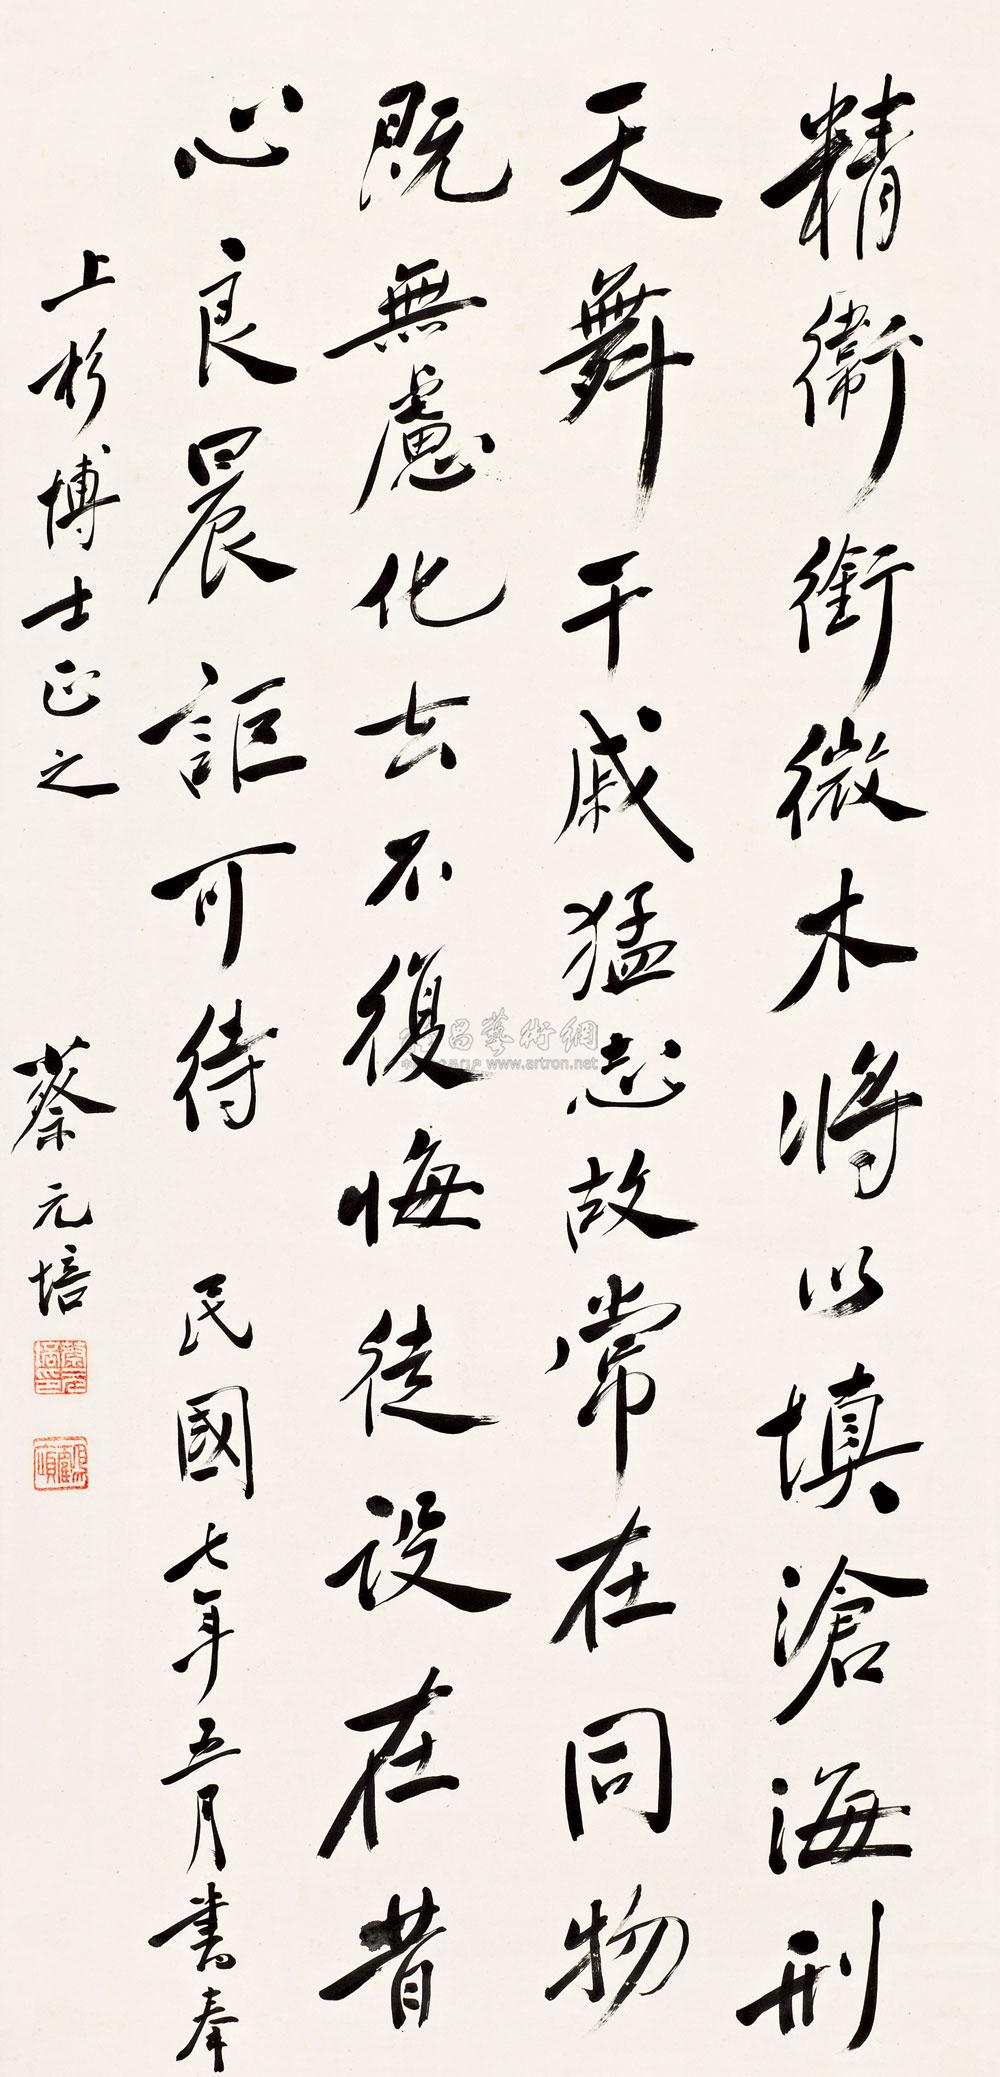 精衛銜微木將以填滄海刑
天舞干戚猛志故常在同物
既無慮化去不復悔徒設在昔
心良晨詎可待 民國七年五月書奉
上杉博士正之 蔡元培
蔡元培印
昌藝術網
www.artron.net